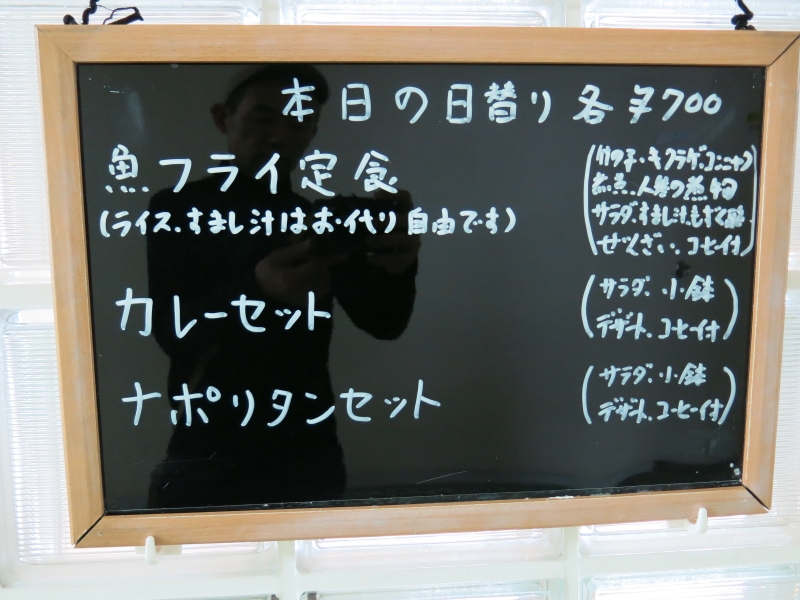 本日の日替り 各 ¥700
魚フライ定食
(ライス、すまし汁はお代り自由です)
(竹の子・キクラゲ、コンニャク
人参の煮物
サラダ、すまし汁、もずく酢
ぜんざい、コーヒー付)
カレーセット
(サラダ、小鉢
デザート、コーヒー付)
ナポリタンセット
(サラダ、小鉢
デザート、コーヒー付)